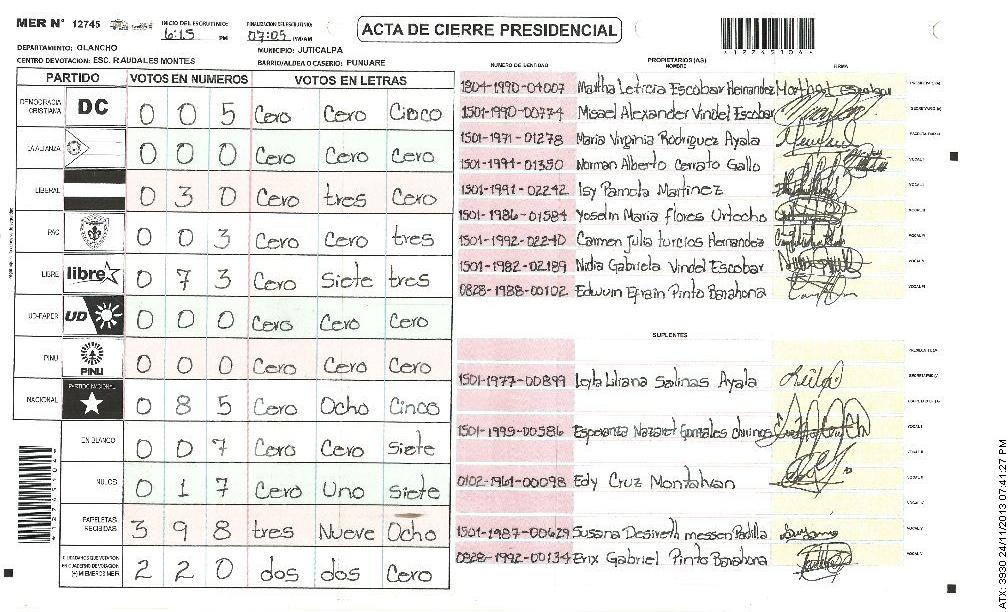 MER N° 12745
INICIO DEL ESCRUTINIO: 6:15 PM
FINALIZACION DEL ESCRUTINIO: 07:05 PM/AM
ACTA DE CIERRE PRESIDENCIAL
DEPARTAMENTO: OLANCHO
MUNICIPIO: JUTICALPA
CENTRO DE VOTACION: ESC. RAUDALES MONTES
BARRIO/ALDEA O CASERIO: PUNUARE
PARTIDO VOTOS EN NUMEROS VOTOS EN LETRAS
DEMOCRACIA CRISTIANA DC 0 0 5 Cero Cero Cinco
LA ALIANZA 0 0 0 Cero Cero Cero
LIBERAL 0 3 0 Cero tres Cero
PAC 0 0 3 Cero Cero tres
LIBRE libre 0 7 3 Cero Siete tres
UD-FAPER UD 0 0 0 Cero Cero Cero
PINU PINU 0 0 0 Cero Cero Cero
NACIONAL PARTIDO NACIONAL 0 8 5 Cero Ocho Cinco
EN BLANCO 0 0 7 Cero Cero Siete
NULOS 0 1 7 Cero Uno Siete
PAPELETAS RECIBIDAS 3 9 8 tres Nueve Ocho
CIUDADANOS QUE VOTARON EN CUADERNO DE VOTACION (+) MIEMBROS MER 2 2 0 dos dos Cero
PROPIETARIOS (AS)
NUMERO DE IDENTIDAD NOMBRE FIRMA
1504-1990-01007 Martha Leticia Escobar Hernandez
1501-1990-00774 Misael Alexander Vindel Escobar
1501-1971-01278 Maria Virginia Rodriguez Ayala
1501-1991-01350 Norman Alberto Cerrato Gallo
1501-1991-02242 Isy Pamola Martinez
1501-1986-01584 Yoselin Maria Flores Urtecho
1501-1992-02240 Carmen Julia turcios Hernandez
1501-1982-02189 Nidia Gabriela Vindel Escobar
0828-1988-00102 Edwuin Efrain Pinto Barahona
SUPLENTES
1501-1977-00899 Leyla Liliana Salinas Ayala
1501-1995-00586 Esperanza Nazaret Gonzales
0102-1961-00098 Edy Cruz Montalvan
1501-1987-00629 Susana Desireth messen Padilla
0828-1992-00134 Erix Gabriel Pinto Barahona
ATX: 3930 24/11/2013 07:41:27 PM